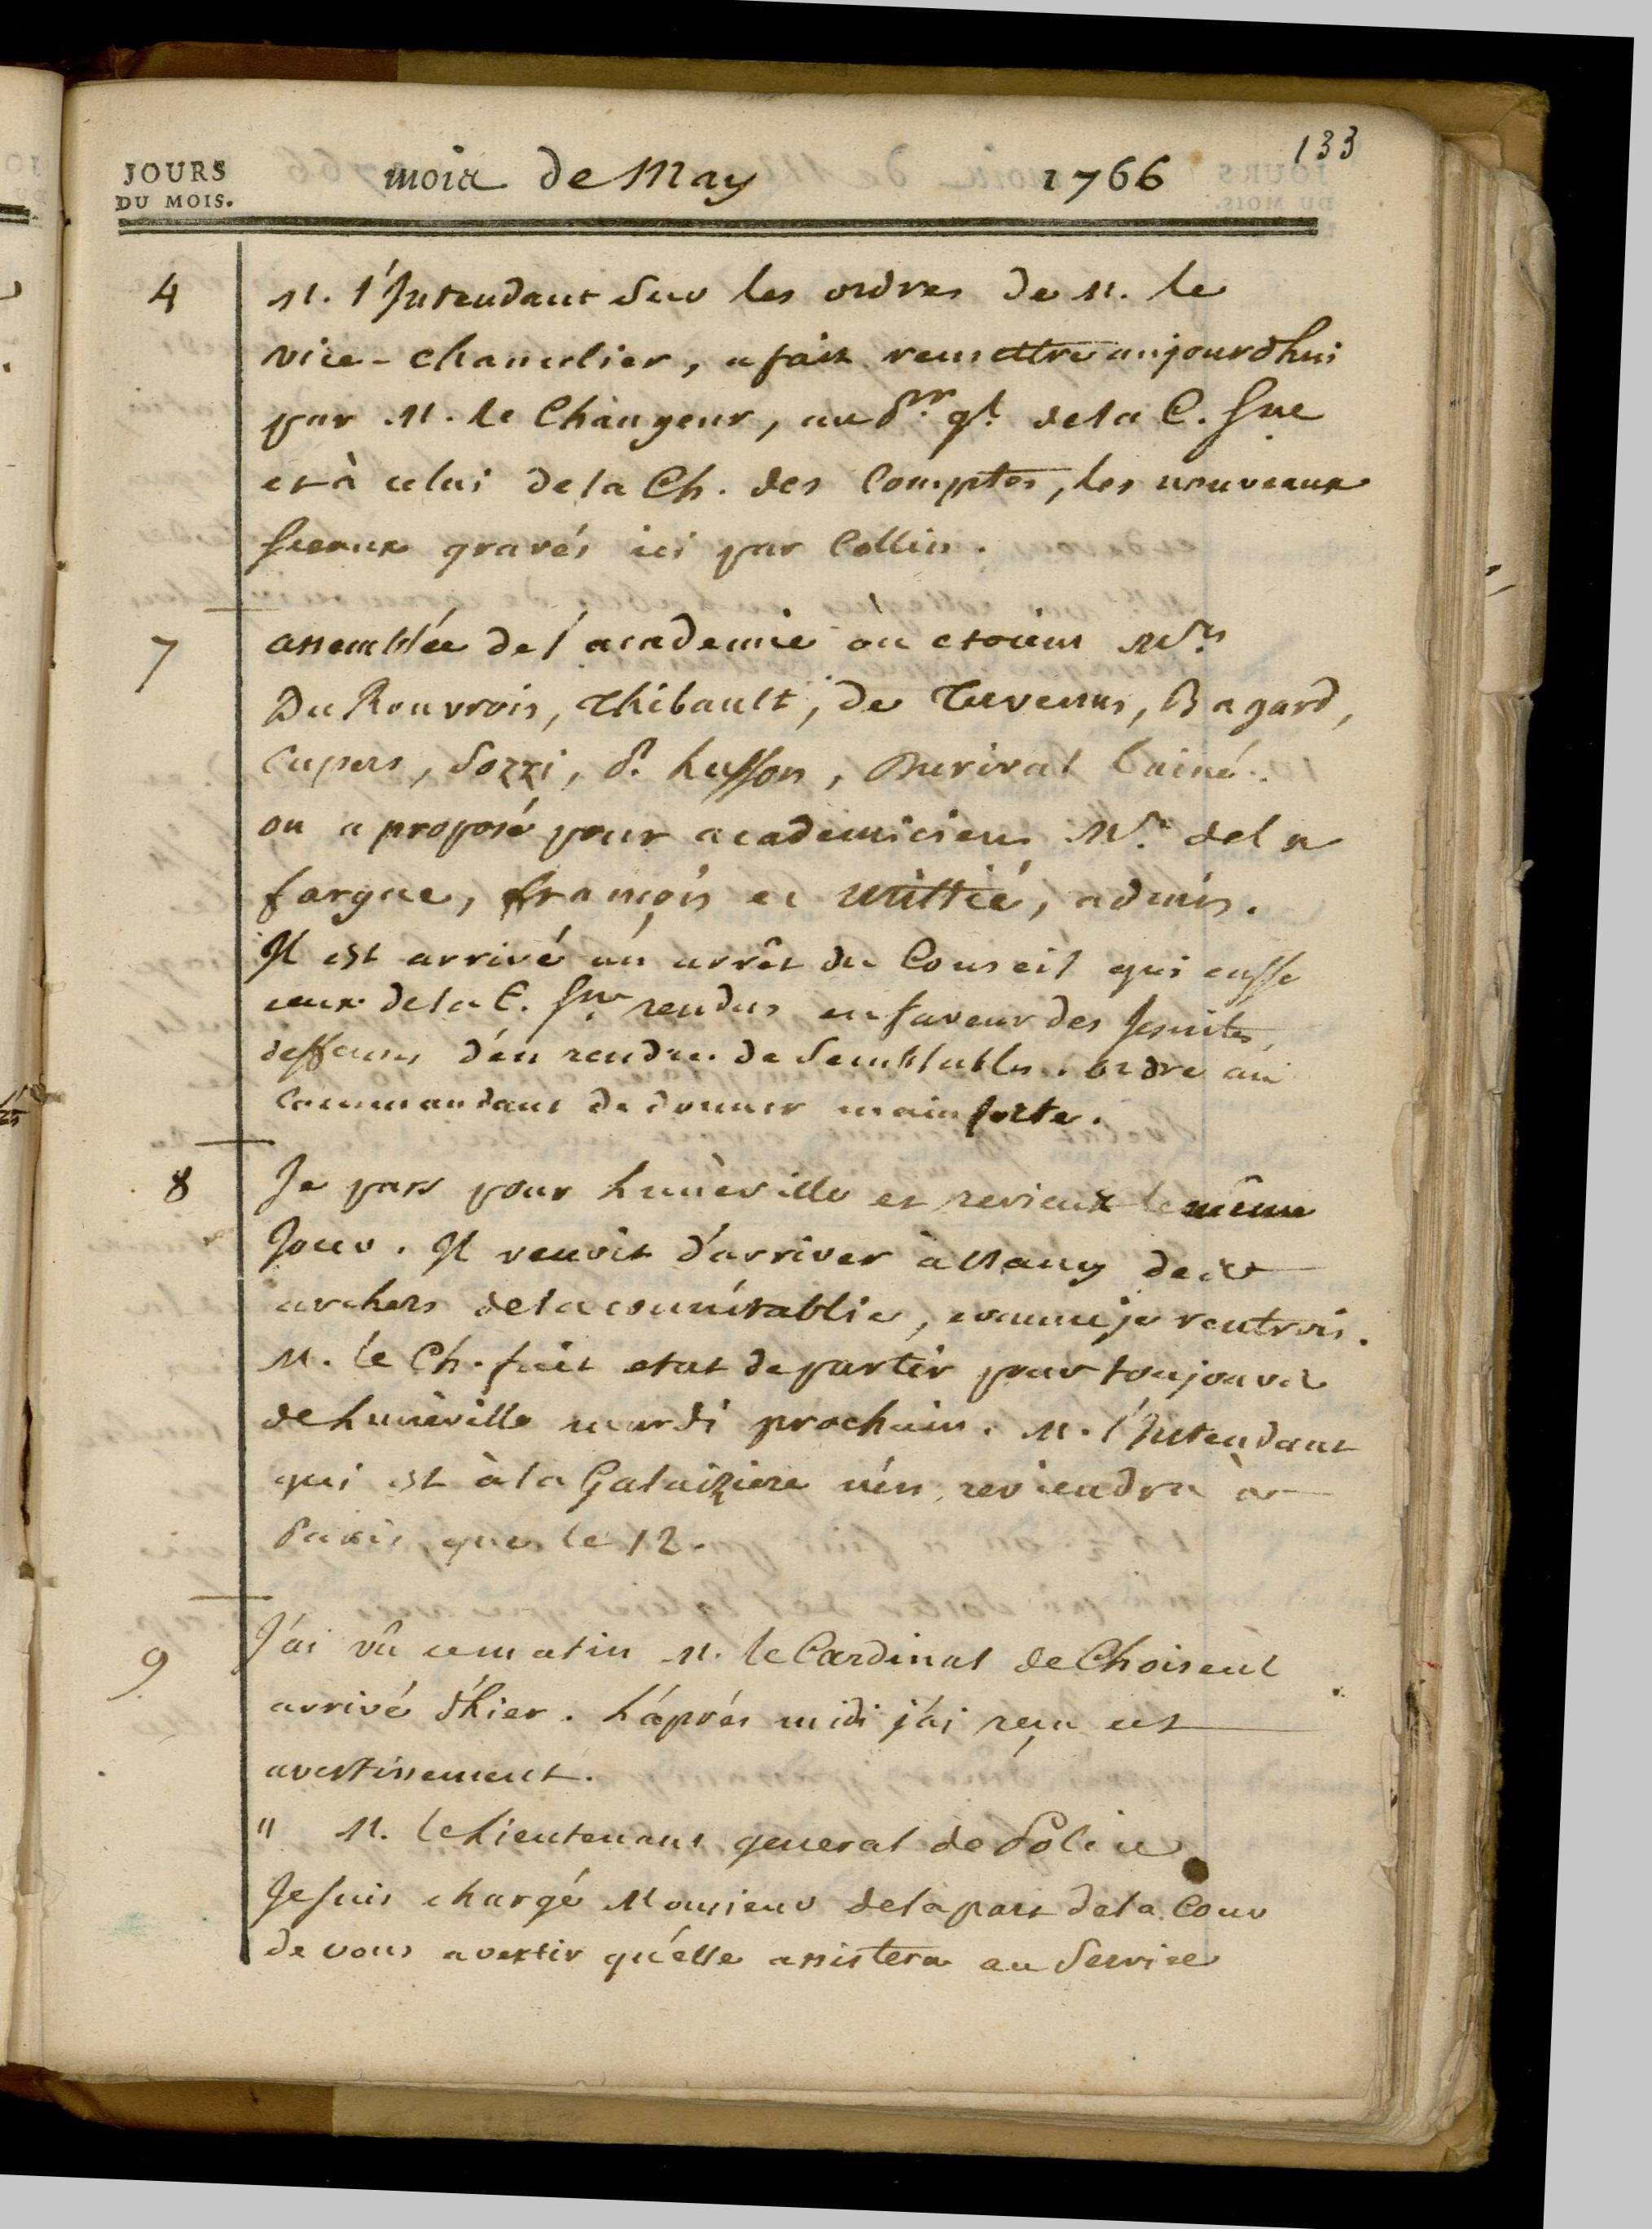 133
JOURS
DU MOIS.
mois de May 1766
4 M. l'Intendant Sur les ordres de M. le
vice-chancelier, a fait remettre aujourdhui
par M. le Changeur, au Prr. gl. de la C. Sne
et à celui de la Ch. des Comptes, les nouveaux
sceaux gravés ici par Collin.
7 assemblée de l'academie ou etoient Mrs.
Du Rouvrois, Thibault, de Tervenus, Bagard,
Cupers, Sozzi, P. husson, Durival l'ainé.
on a proposé pour academiciens Mrs. de la
fargue, françois et Willié, admis.
Il est arrivé un arrêt du Conseil qui casse
ceux de la C. Sne rendus en faveur des Jesuites,
deffenses d'en rendre de Semblables. ordre au
Commandant de donner main forte.
8 Je pars pour Lunéville et reviens le même
Jour. Il venoit d'arriver à Nancy deux
archers de la connétablie, comme je rentrois.
M. le Ch. fait etat de partir pour toujours
de Lunéville mardi prochain. M. l'Intendant
qui est à la Galaiziere n'en reviendra à
Paris que le 12.
9 J'ai vû ce matin M. le Cardinal de Choiseul
arrivé d'hier. L'aprés midi j'ai reçu cet
avertissement.
" M. le Lieutenant general de Police
Je suis chargé Monsieur de la part de la Cour
de vous avertir qu'elle assistera au Service